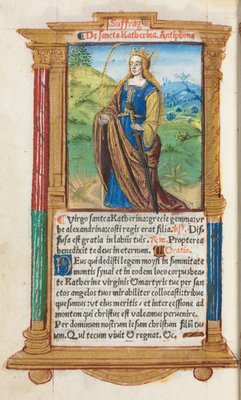 Suffrag.
De sancta Katherina. Antiphona
Virgo sancta Katherina: grecie gemma: vr
be alexandrina: costi regis erat filia. Dif
fusa est gratia in labiis tuis. Propterea
benedixit te deus in eternum. Oratio.
Deus qui dedisti legem moysi in summitate
montis synai et in eodem loco corpus bea
te Katherine virginis et martyris tue per san
ctos angelos tuos mirabiliter collocasti: tribue
quesumus: vt eius meritis et intercessione ad
montem qui christus est valeamus peruenire.
Per dominum nostrum iesum christum filium tu
um. Qui tecum viuit et regnat. &c.